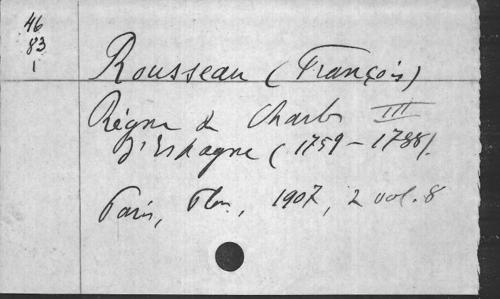 46
83
1
Rousseau (François)
Règne de Charles III
d'Espagne (1759-1788).
Paris, Plon, 1907, 2 vol. 8